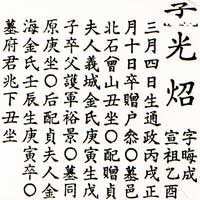 光炤
字晦成
宣祖乙酉
三月四日生通政丙戌正
月十日卒贈戶參〇墓邑
北石會山丑坐〇配贈貞
夫人義城金氏庚寅生戊
子卒父護軍裕景〇墓同
原庚坐〇后配貞夫人金
海金氏壬辰生庚寅卒〇
墓府君兆下丑坐